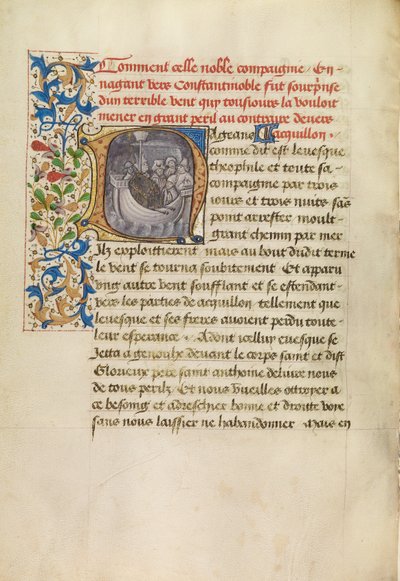 Comment celle noble compaignie En
nagant vers Constantinoble fut sourprise
dun terrible vent quy tousiours la vouloit
mener en grant peril au contraire devers
acquillon
comme dit est levesque
theophile et toute sa
compaignie par trois
iours et trois nuits sãs
point arrester moult
grant chemin par mer
ilz exploittierent mais au bout dudit terme
le vent se tourna soubitement Et apparu
ung autre vent soufflant et se estendant
vers les parties de acquillon tellement que
levesque et ses freres avoient perdu toute
leur esperance Adont icelluy evesque se
Jetta a genoulz devant le corps saint et dist
Glorieux pere saint anthoine delivre nous
de tous perilz Et nous vueilles ottroyer a
ce besoing et adreschier bonne et droitte voye
sans nous laissier ne habandonner Mais en